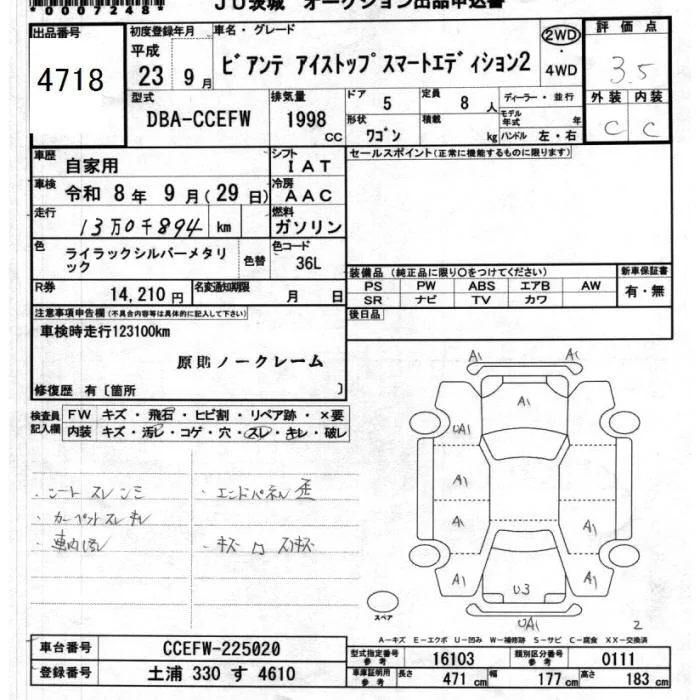 *00072484*
JU茨城 オークション出品申込書
出品番号
4718
初度登録年月
平成
23 9 月
車名・グレード
ビアンテ アイストップスマートエディション2
2WD
・
4WD
評価点
3.5
外装 内装
C C
型式
DBA-CCEFW
排気量
1998 CC
ドア 5
定員 8 人
形状 ワゴン
積載 kg
ディーラー・並行
モデル年式 年
ハンドル 左・右
車歴 自家用
シフト IAT
車検 令和 8 年 9 月 (29 日)
冷房 AAC
走行 13万0千894 km
燃料 ガソリン
色 ライラックシルバーメタリック
色替
色コード 36L
R券 14,210 円
名変通知期限 月 日
セールスポイント(正常に機能するものに限ります)
装備品(純正品に限り○をつけてください)
PS PW ABS エアB AW
SR ナビ TV カワ
新車保証書
有・無
後日品
注意事項申告欄(不具合内容等は具体的に記入して下さい)
車検時走行123100km
原則ノークレーム
修復歴 有〔箇所 〕
検査員記入欄
FW キズ・飛石・ヒビ割・リペア跡・×要
内装 キズ・汚レ・コゲ・穴・スレ・キレ・破レ
・シート スレ シミ
・エンドパネル 歪
・カーペットスレ キレ
・車内汚れ
・キズ
A1 A1
A1
UA1
A1 A1
A1 A1
A1 A1
U3
UA1
2
スペア
A-キズ E-エクボ U-凹み W-補修跡 S-サビ C-腐食 XX-交換済
車台番号 CCEFW-225020
登録番号 土浦 330 す 4610
型式指定番号 参考 16103
類別区分番号 参考 0111
車庫証明用 参考 長さ 471 cm 幅 177 cm 高さ 183 cm